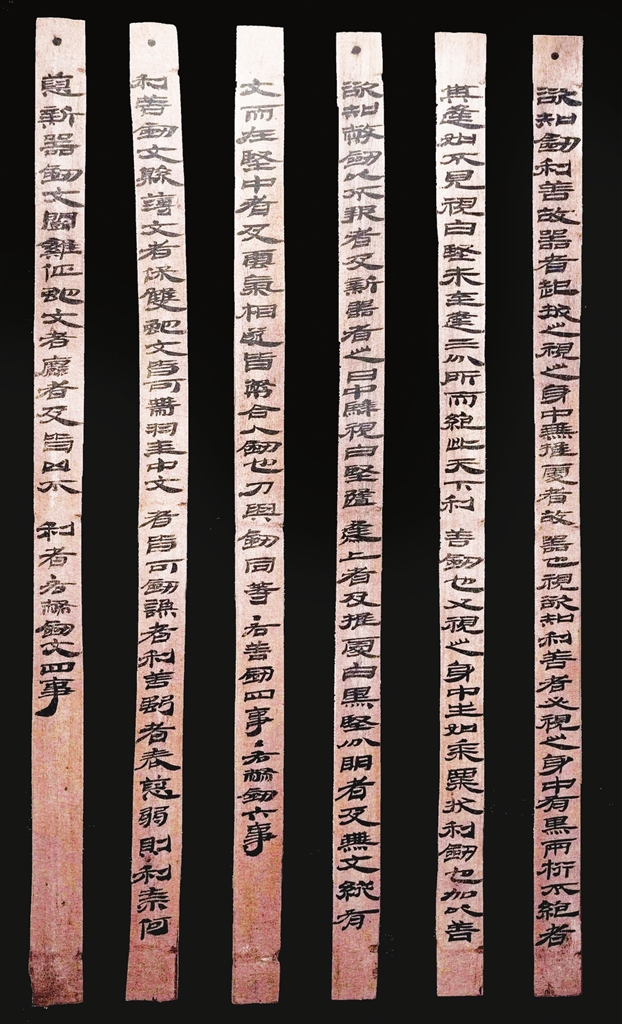 欲知劒利善故器者起拔之視之身中無推處者故器也視欲知利善者必視之身中有黑兩桁不絕者
其逢如不見視白堅未至逢三分所而絕此天下利善劒也又視之身中生如黍粟狀利劒也加以善
欲知幣劒以不報者及新器者之日中騂視白堅隨逢上者及推處白黑堅分明者及無文縱有
文而在堅中者及雲氣相遂皆幣合人劒也刀與劒同等·右善劒四事·右幣劒六事
利善劒文縣薄文者保雙蛇文皆可帶羽圭中文者皆可劒謙者利善強者表恿弱則利奈何
恿新器劒文鬬雞征蛇文者麤者及皆凶不利者右幣劒文四事